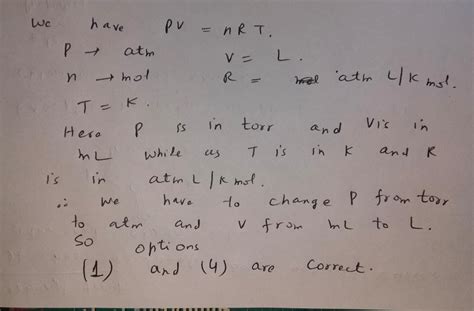 We have PV = nRT.
P → atm V = L.
n → mol R = atm L/K mol.
T = K.
Here P is in torr and V is in
mL while as T is in K and R
is in atm L/K mol.
∴ We have to change P from torr
to atm and V from mL to L.
So options
(1) and (4) are correct.